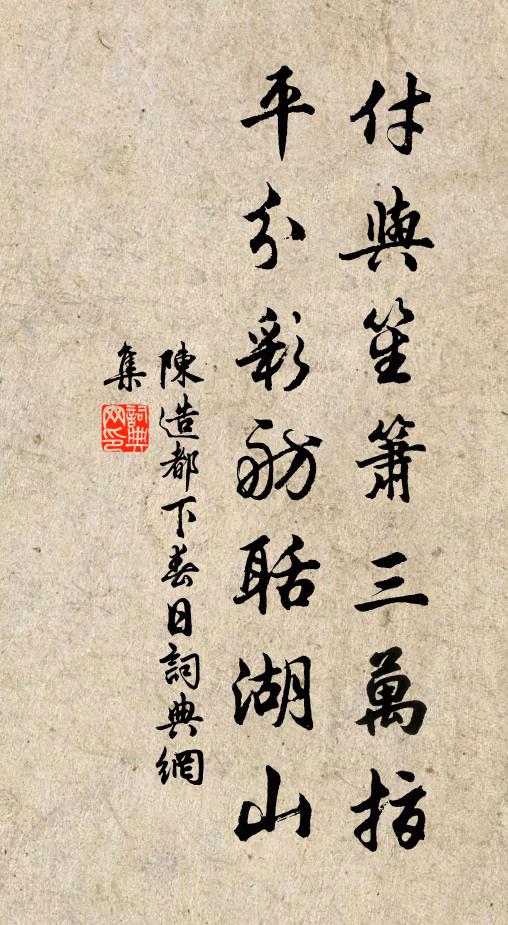 付與笙簫三萬指
平分彩舫聒湖山
陳造都下春日詞典網
集
詞典
网印